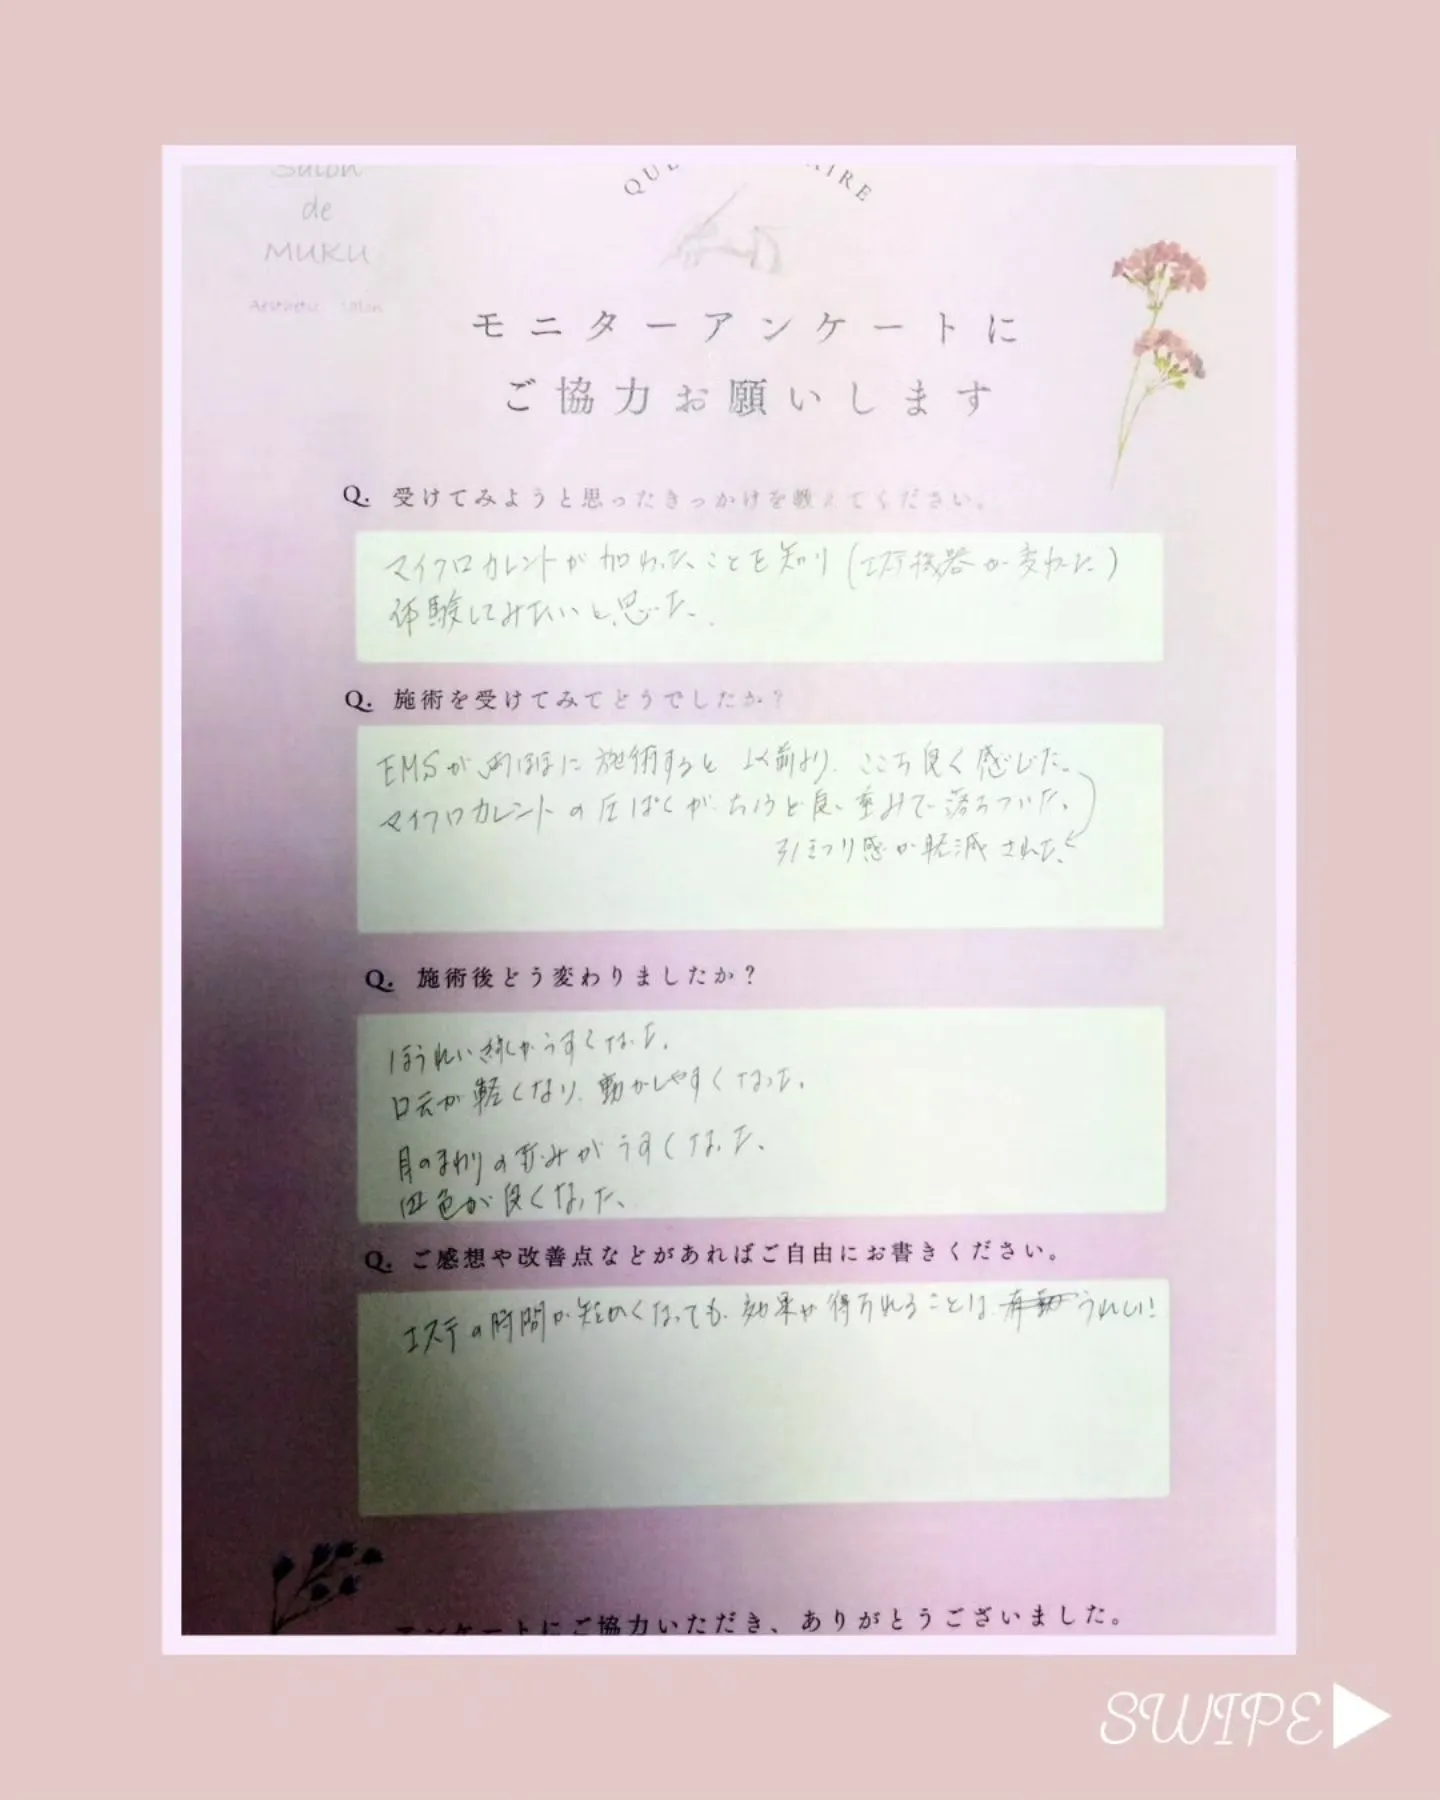 Salon
de
MUKU
Aesthetic Salon
モニターアンケートに
ご協力お願いします
Q. 受けてみようと思ったきっかけを教えてください。
マイクロカレントが加わったことを知り(エステ機器が変わった)
体験してみたいと思った。
Q. 施術を受けてみてどうでしたか?
EMSが 施術すると 以前より、ここち良く感じた。
マイクロカレントの圧ぱくが、ちょうど良い重みで落ちついた。
引きつり感が軽減された。
Q. 施術後どう変わりましたか?
ほうれい線がうすくなった。
口元が軽くなり、動かしやすくなった。
目のまわりの がうすくなった。
血色が良くなった。
Q. ご感想や改善点などがあればご自由にお書きください。
エステの時間が短かくなっても、効果が得られることは、うれしい!
アンケートにご協力いただき、ありがとうございました。
SWIPE